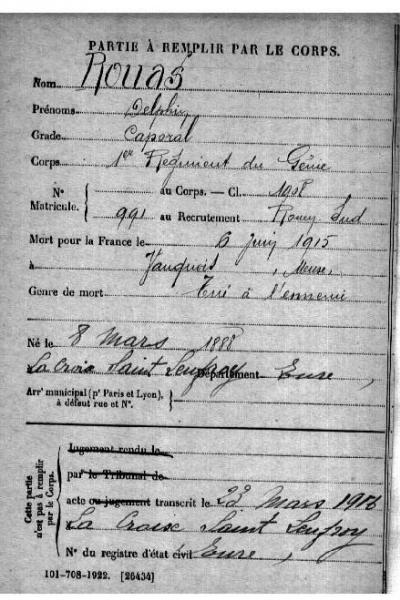 PARTIE À REMPLIR PAR LE CORPS.
Nom Rouas
Prénoms Delphin
Grade Caporal
Corps 1er Régiment du Génie
N° Matricule. { au Corps. — Cl. 1908
991 au Recrutement Rouen Sud
Mort pour la France le 6 juin 1915
à Vauquois, Meuse,
Genre de mort Tué à l'ennemi
Né le 8 Mars 1888
La Croix Saint Leufroy Département Eure,
Arrt municipal (pr Paris et Lyon), à défaut rue et N°. }
Cette partie n'est pas à remplir par le Corps.
Jugement rendu le
par le Tribunal de
acte ou jugement transcrit le Mars 1916
La Croix Saint Leufroy
N° du registre d'état civil Eure,
101-708-1922. [26434]